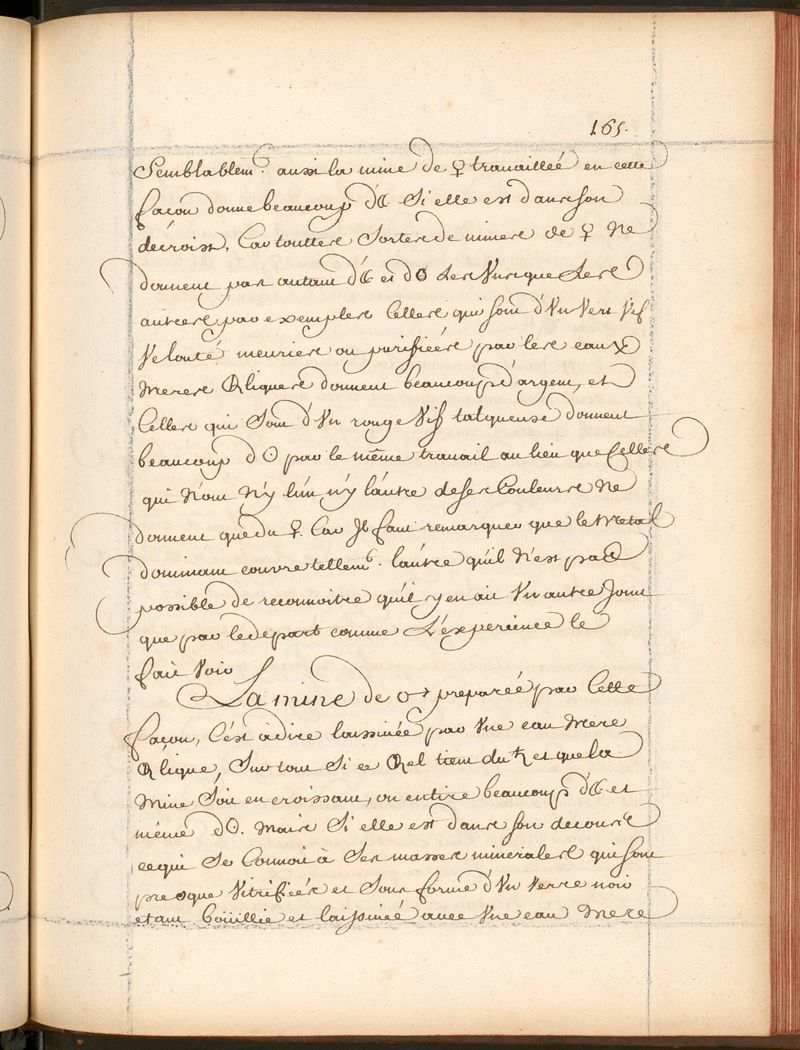 165.
Semblablem.t aussi la mine de ♀ travailleé en cette
façon donne beaucoup d'☾ Si elle est dans son
décroist, Car touttes Sortes de mines de ♀ Ne
donnent pas autant d'☾ et d'☉ Les Vnes que Les
autres par exemples Celles qui sont d'Vn Vert Vif
Velouté meuries ou purifieés par les eaux
Meres donnent beaucoup d'argent, et
Celles qui Sont d'Vn rouge Vif talqueuse donnent
beaucoup d'☉ par le même travail au lieu que Celles
qui N'ont N'y l'un N'y l'autre de Ses Couleurs Ne
donnent que du ♀. Car Jl faut remarquer que le Metal
dominant couvre tellem.t l'autre qu'il N'est pas
possible de reconnoitre qu'il y en ait Vn autre Joint
que par le depart comme L'experience le
fait Voir
La mine de ♂ prepareé par Cette
façon, C'est à dire laissineé par Vne eau Mere
Sur tout Si ce tient du ♄ et que la
Mine Soit en croissant, on en tire beaucoup d'☾ et
même d'☉. Mais Si elle est dans son decours
ce qui Se Connoit à Ses masses minerales qui sont
presque Vitrifieés et Sous forme d'Vn Verre noir
etant boüillie et laissineé avec Vne eau Mere